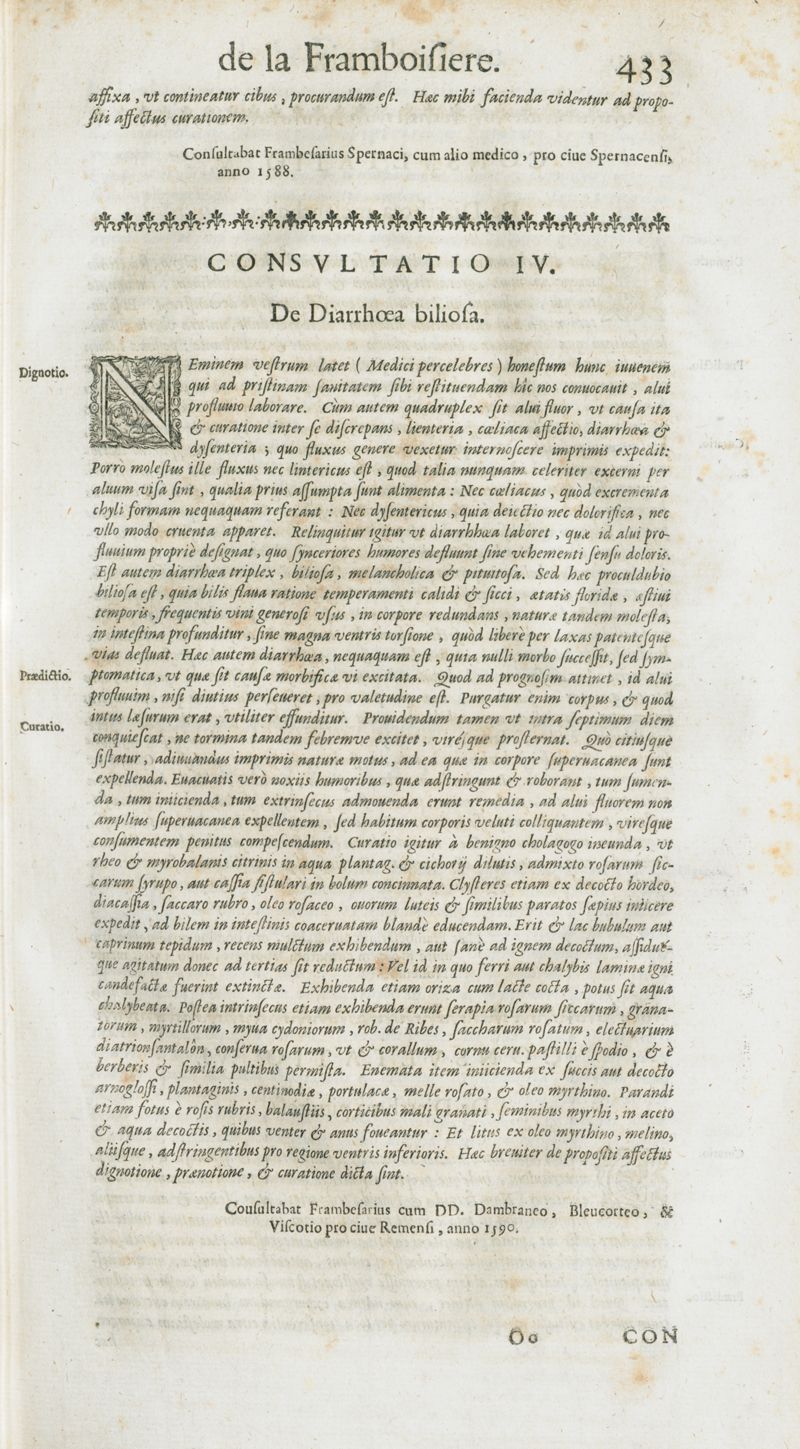 de la Framboiſiere. 433
affixa , vt contineatur cibus , procurandum eſt. Hæc mihi facienda videntur ad propo-
ſiti affectus curationem.
Conſultabat Frambeſarius Spernaci, cum alio medico , pro ciue Spernacenſi,
anno 1588.
CONSVLTATIO IV.
De Diarrhœa bilioſa.
Dignotio.
NEminem veſtrum latet ( Medici percelebres ) honeſtum hunc iuuenem
qui ad priſtinam ſanitatem ſibi reſtituendam hîc nos conuocauit , alui
profluuio laborare. Cùm autem quadruplex ſit alui fluor , vt cauſa ita
& curatione inter ſe diſcrepans , lienteria , cœliaca affectio, diarrhœa &
dyſenteria ; quo fluxus genere vexetur internoſcere imprimis expedit:
Porrò moleſtus ille fluxus nec lintericus eſt , quod talia nunquam celeriter excerni per
aluum viſa ſint , qualia prius aſſumpta ſunt alimenta : Nec cœliacus , quòd excrementa
chyli formam nequaquam referant : Nec dyſentericus , quia deiectio nec dolorifica , nec
vllo modo cruenta apparet. Relinquitur igitur vt diarrhhœa laboret , quæ id alui pro-
fluuium propriè deſignat , quo ſynceriores humores defluunt ſine vehementi ſenſu doloris.
Eſt autem diarrhœa triplex , bilioſa , melancholica & pituitoſa. Sed hæc proculdubio
bilioſa eſt , quia bilis flaua ratione temperamenti calidi & ſicci , ætatis floridæ , æſtiui
temporis , frequentis vini generoſi vſus , in corpore redundans , naturæ tandem moleſta,
in inteſtina profunditur , ſine magna ventris torſione , quòd liberè per laxas patenteſque
vias defluat. Hæc autem diarrhœa , nequaquam eſt , quia nulli morbo ſucceſſit, ſed ſym-
Prædictio.
ptomatica, vt quæ ſit cauſæ morbificæ vi excitata. Quod ad prognoſim attinet , id alui
profluuim , niſi diutius perſeueret , pro valetudine eſt. Purgatur enim corpus , & quod
intus læſurum erat , vtiliter effunditur. Prouidendum tamen vt intra ſeptimum diem
Curatio.
conquieſcat , ne tormina tandem febremve excitet , viréſque proſternat. Quò citiuſque
ſiſtatur , adiuuandus imprimis naturæ motus , ad ea quæ in corpore ſuperuacanea ſunt
expellenda. Euacuatis verò noxiis humoribus , quæ adſtringunt & roborant , tum ſumen-
da , tum iniicienda , tum extrinſecus admouenda erunt remedia , ad alui fluorem non
amplius ſuperuacanea expellentem , ſed habitum corporis veluti colliquantem , vireſque
conſumentem penitus compeſcendum. Curatio igitur à benigno cholagogo ineunda , vt
rheo & myrobalanis citrinis in aqua plantag. & cichorij dilutis , admixto roſarum ſic-
carum ſyrupo , aut caſſia fiſtulari in bolum concinnata. Clyſteres etiam ex decocto hordeo,
diacaſſia , ſaccaro rubro , oleo roſaceo , ouorum luteis & ſimilibus paratos ſæpius iniicere
expedit , ad bilem in inteſtinis coaceruatam blandè educendam. Erit & lac bubulum aut
caprinum tepidum , recens mulctum exhibendum , aut ſanè ad ignem decoctum, aſſidué-
que agitatum donec ad tertias ſit reductum : Vel id in quo ferri aut chalybis laminæ igni
candefactæ fuerint extinctæ. Exhibenda etiam oriza cum lacte cocta , potus ſit aqua
chalybeata. Poſtea intrinſecus etiam exhibenda erunt ſerapia roſarum ſiccarum , grana-
torum , myrtillorum , myua cydoniorum , rob. de Ribes , ſaccharum roſatum , electuarium
diatrionſantalôn , conſerua roſarum , vt & corallum , cornu ceru. paſtilli è ſpodio , & è
berberis & ſimilia pultibus permiſta. Enemata item iniicienda ex ſuccis aut decocto
arnogloſſi , plantaginis , centinodiæ , portulacæ , melle roſato , & oleo myrthino. Parandi
etiam fotus è roſis rubris , balauſtiis , corticibus mali granati , ſeminibus myrthi , in aceto
& aqua decoctis , quibus venter & anus foueantur : Et litus ex oleo myrthino , melino,
aliiſque , adſtringentibus pro regione ventris inferioris. Hæc breuiter de propoſiti affectus
dignotione , prænotione , & curatione dicta ſint.
Couſultabat Frambeſarius cum DD. Dambraneo , Bleucorteo , &
Viſcotio pro ciue Remenſi , anno 1590.
Oo CON